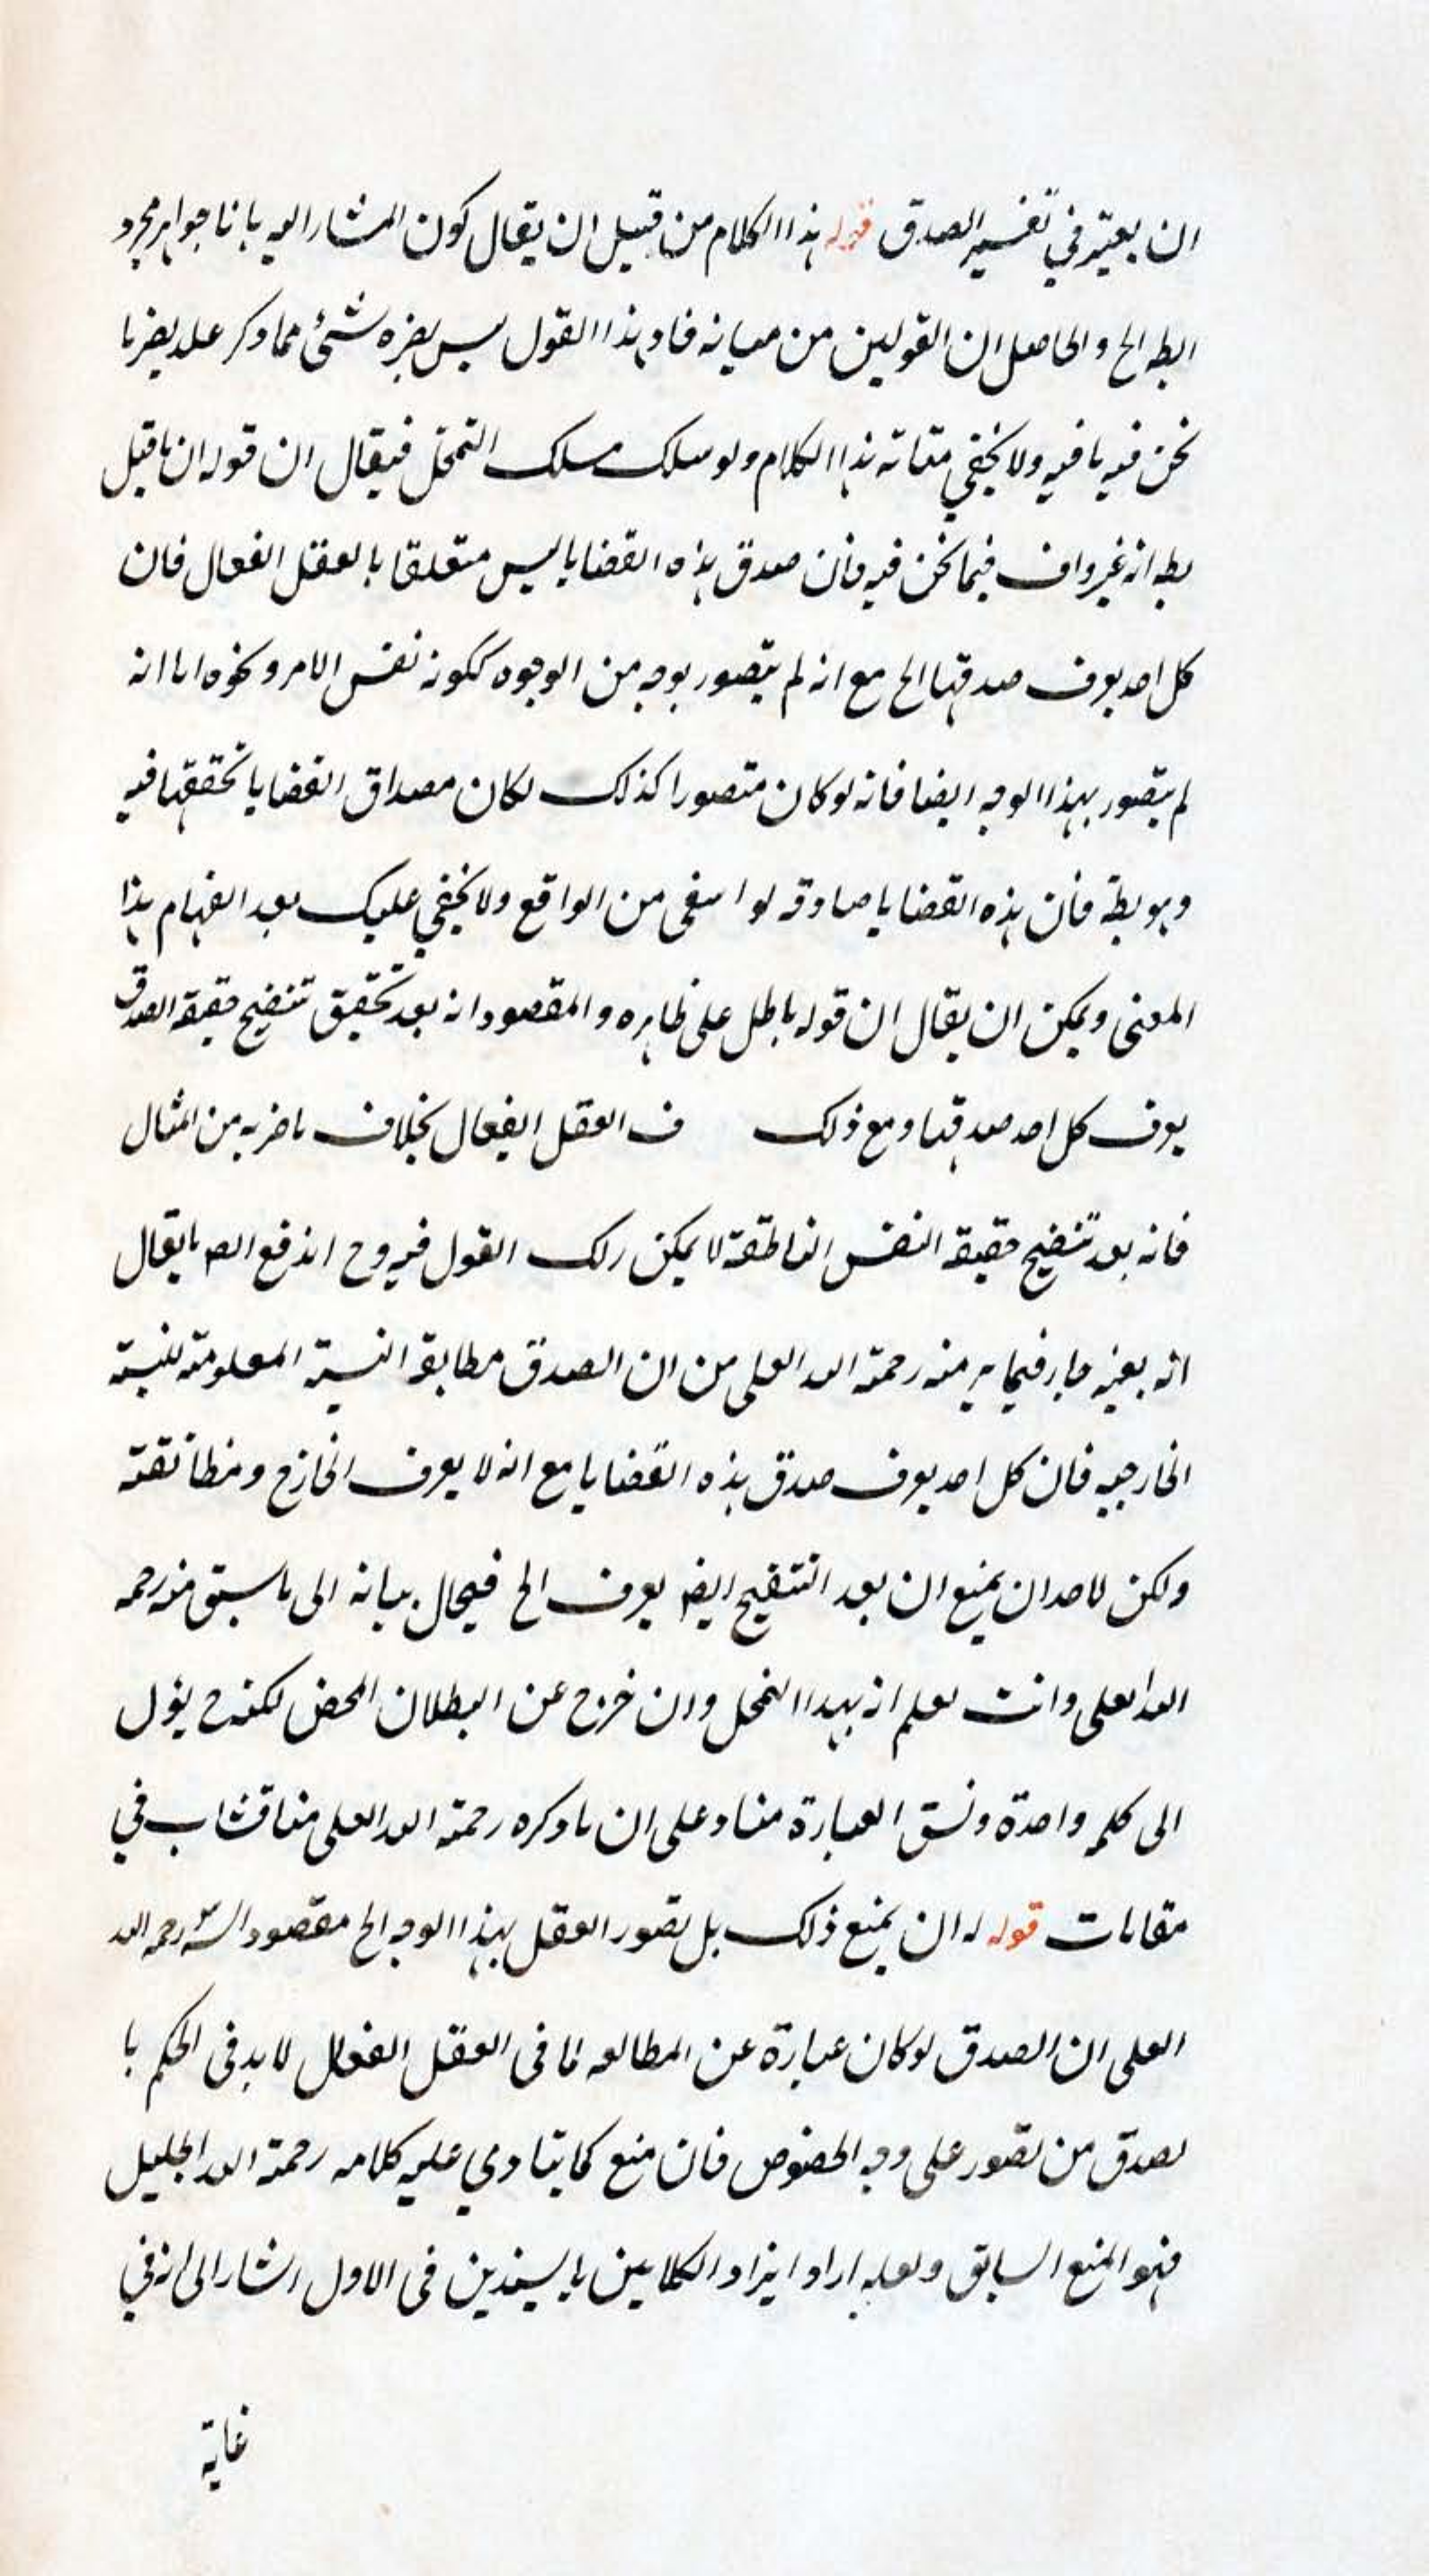 ان يعتبر في تفسير الصدق قوله هذا الكلام من قبيل ان يقال كون المشار اليه بانا جواهر مجرد
الخ والحاصل ان القولين من هذا القول ليس يضره شئ مما ذكر
نحن فيه ما فيه ولا يخفى متانة هذا الكلام ولو سلك مسلك التمحّل فيقال ان قوله ان ما قيل
بط انه غير واف فيما نحن فيه فان صدق هذه القضايا ليس متعلقا بالعقل الفعال فان
كل احد يعرف صدقها الخ مع انه لم يتصور بوجه من الوجوه ككونه نفس الامر ونحوه اما انه
لم يتصور بهذا الوجه ايضا فانه لو كان متصورا كذلك لكان مصداق القضايا تحققها فيه
وهو بط فان هذه القضايا صادقه من الواقع ولا يخفى عليك بعد انفهام هذا
المعنى ويمكن ان يقال ان قوله باطل على ظاهره والمقصود انه بعد تحقيق تنقيح حقيقة الصدق
يعرف كل احد صدقها ومع ذلك ف العقل الفعال بخلاف ما ضربه من المثال
فانه بعد تنقيح حقيقة النفس الناطقة لا يمكن ذلك القول فيه وح اندفع ايضا ما يقال
انه بعينه جار فيما منه رحمة الله العلى من ان الصدق مطابقة النسبة المعلومة للنسبة
الخارجيه فان كل احد يعرف صدق هذه القضايا مع انه لا يعرف الخارج ومطابقته
ولكن لاحد ان يمنع ان بعد التنقيح ايضا يعرف الخ فيحال بيانه الى ما سبق منه رحمه
الله العلى وانت تعلم انه بهذا التمحل وان خرج عن البطلان المحض لكنه ح يؤل
الى كلمه واحدة ونسق العبارة مناد على ان ما ذكره رحمة الله العلى مناقشات في
مقامات قوله له ان يمنع ذلك بل تصور العقل بهذا الوجه الخ مقصود الش رحمه الله
العلى ان الصدق لو كان عبارة عن المطابقه لما فى العقل الفعال لا بد فى الحكم با
لصدق من تصور على وجه الخصوص فان منع كما يتادي عليه كلامه رحمة الله الجليل
فهو المنع السابق ولعله اراد ايراد الكلامين بالسندين فى الاول اشار الى انه في
غاية